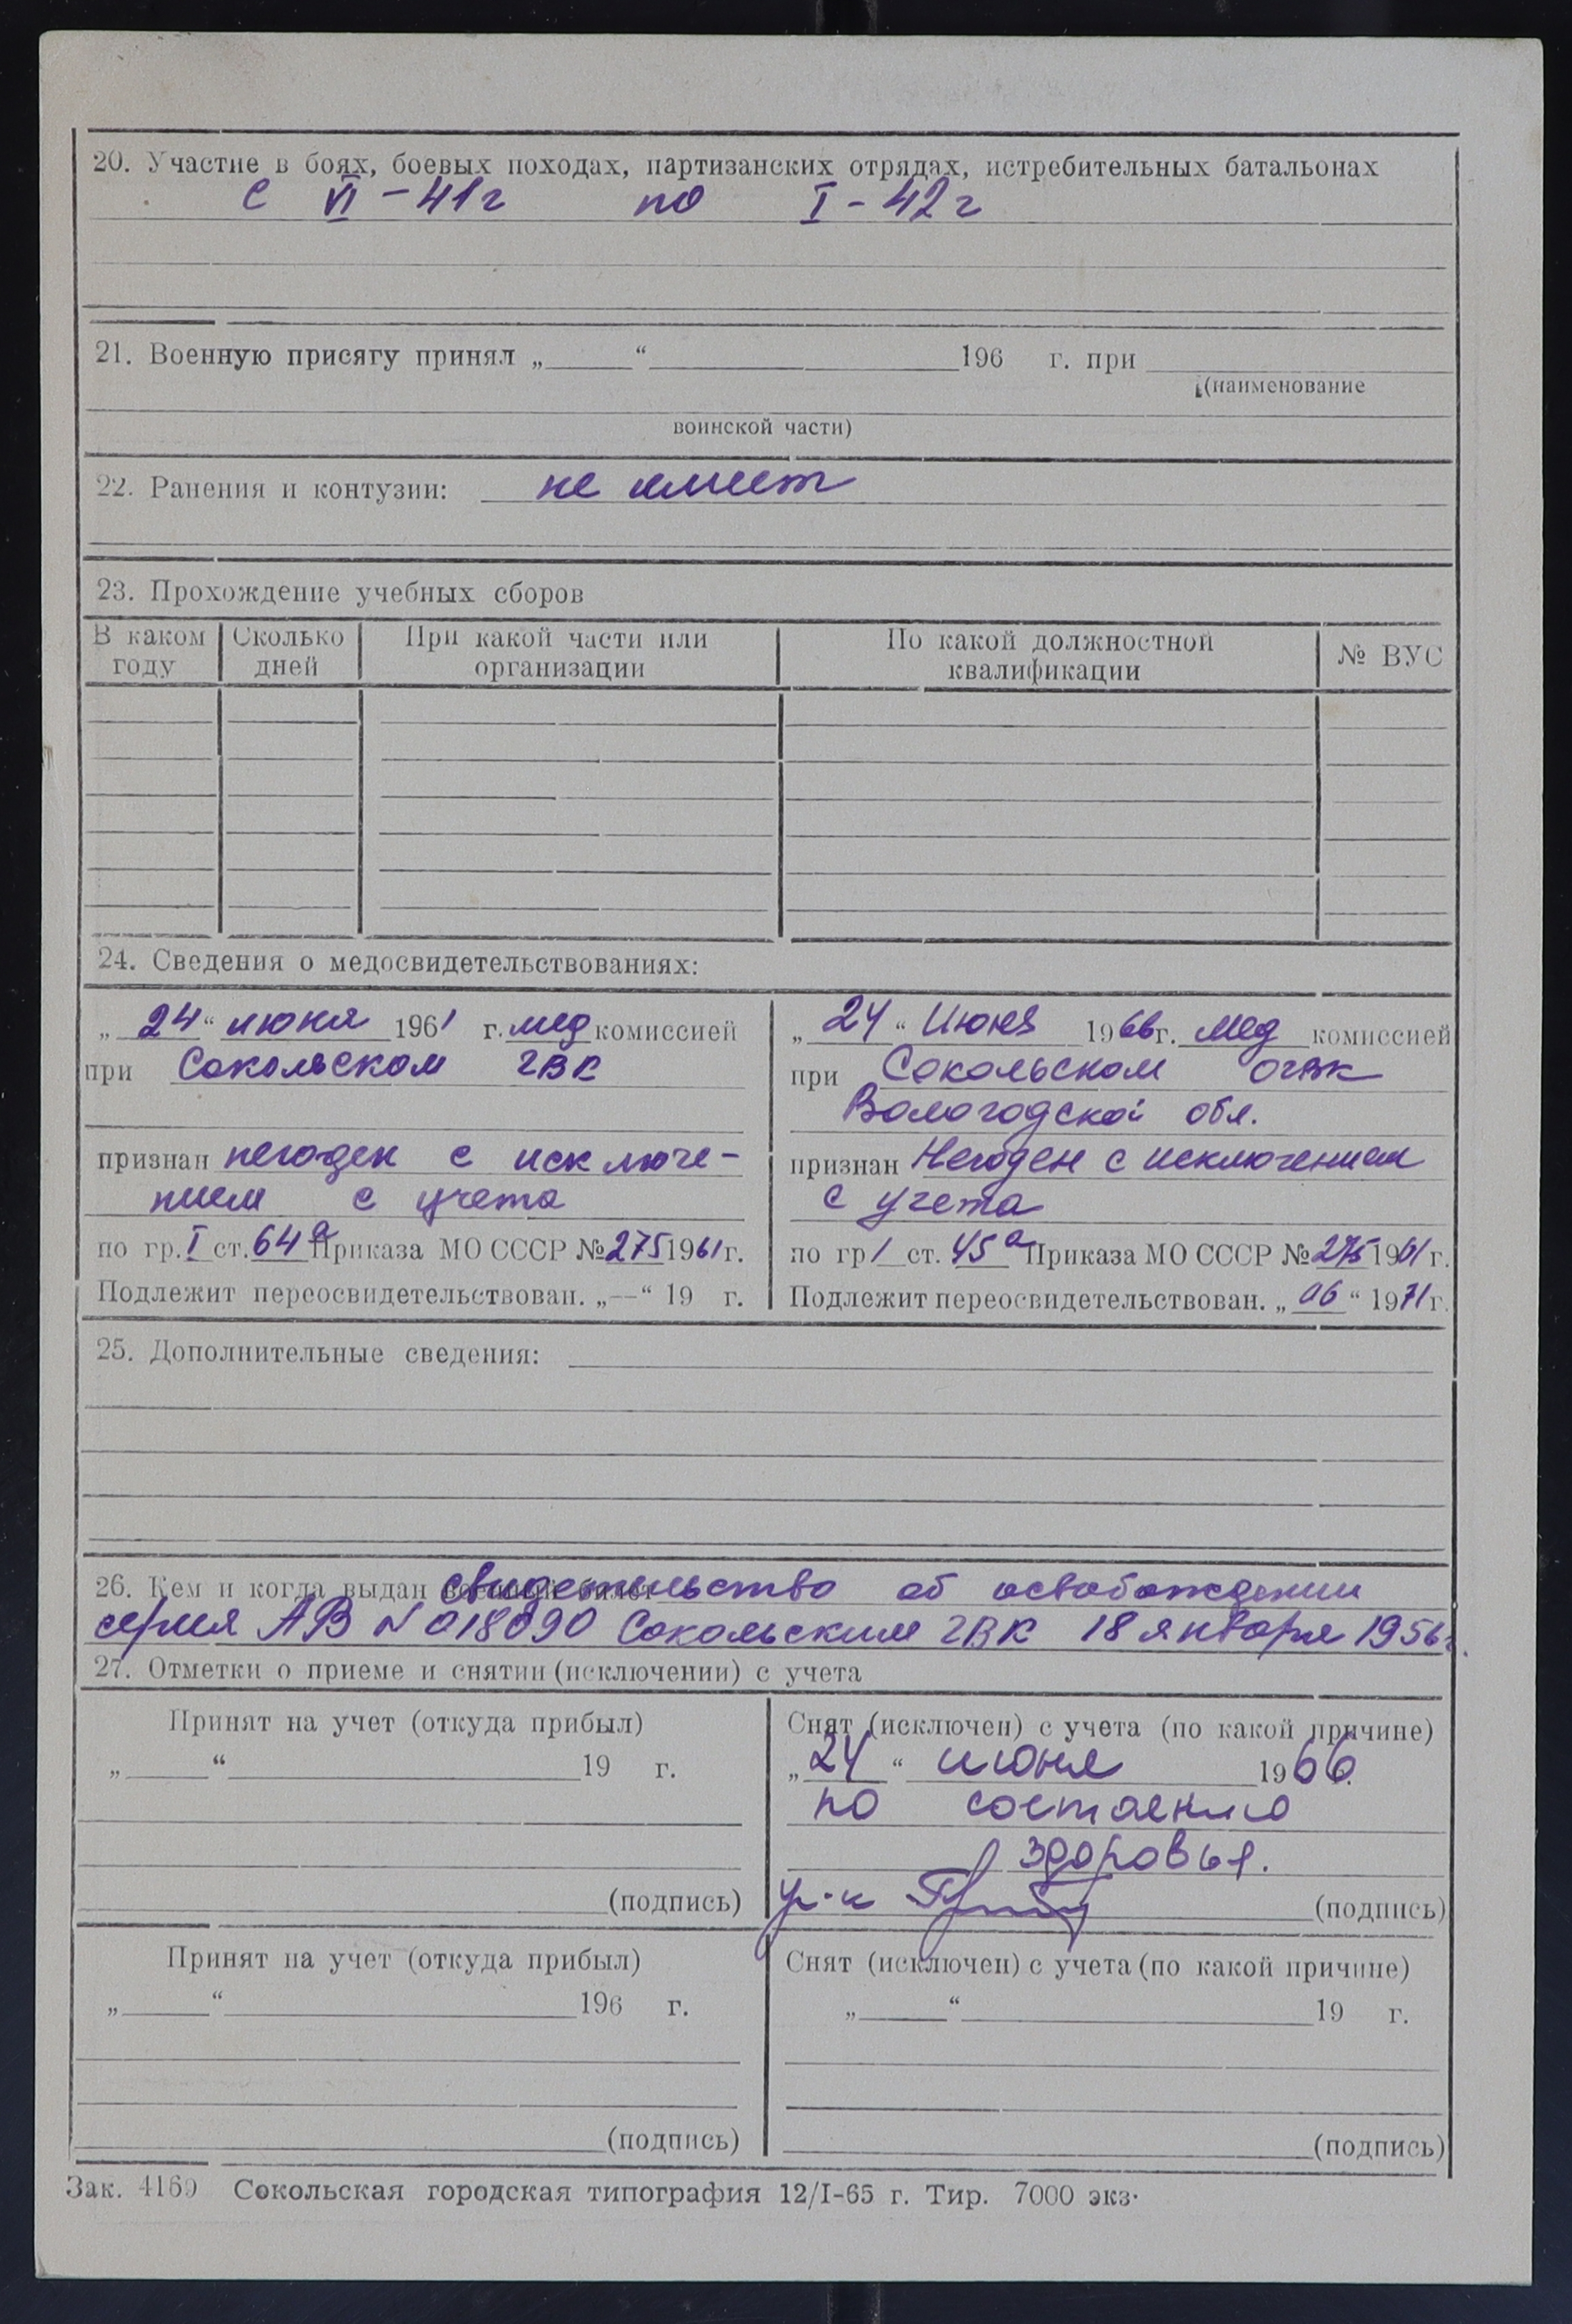 20. Участие в боях, боевых походах, партизанских отрядах, истребительных батальонах
с VI – 41г по I – 42г
21. Военную присягу принял „ “ 196 г. при
(наименование
воинской части)
22. Ранения и контузии: не имеет
23. Прохождение учебных сборов
В каком году Сколько дней При какой части или организации По какой должностной квалификации № ВУС
24. Сведения о медосвидетельствованиях:
„ 24 “ июня 1961 г. мед комиссией
при Сокольском ГВК
признан негоден с исключе-
нием с учета
по гр. I ст. 64а Приказа МО СССР № 275 1961 г.
Подлежит переосвидетельствован. „—“ 19 г.
„ 24 “ Июня 1966 г. мед комиссией
при Сокольском ОГВК
Вологодской обл.
признан Негоден с исключением
с учета
по гр 1 ст. 45а Приказа МО СССР № 275 1961 г.
Подлежит переосвидетельствован. „ 06 “ 1971 г.
25. Дополнительные сведения:
26. Кем и когда выдан военный билет свидетельство об освобождении
серия АВ N 018090 Сокольским ГВК 18 января 1956г.
27. Отметки о приеме и снятии (исключении) с учета
Принят на учет (откуда прибыл)
„ “ 19 г.
(подпись)
Снят (исключен) с учета (по какой причине)
„ 24 “ июня 1966
по состоянию
здоровья.
(подпись)
Принят на учет (откуда прибыл)
„ “ 196 г.
(подпись)
Снят (исключен) с учета (по какой причине)
„ “ 19 г.
(подпись)
Зак. 4169 Сокольская городская типография 12/I-65 г. Тир. 7000 экз.